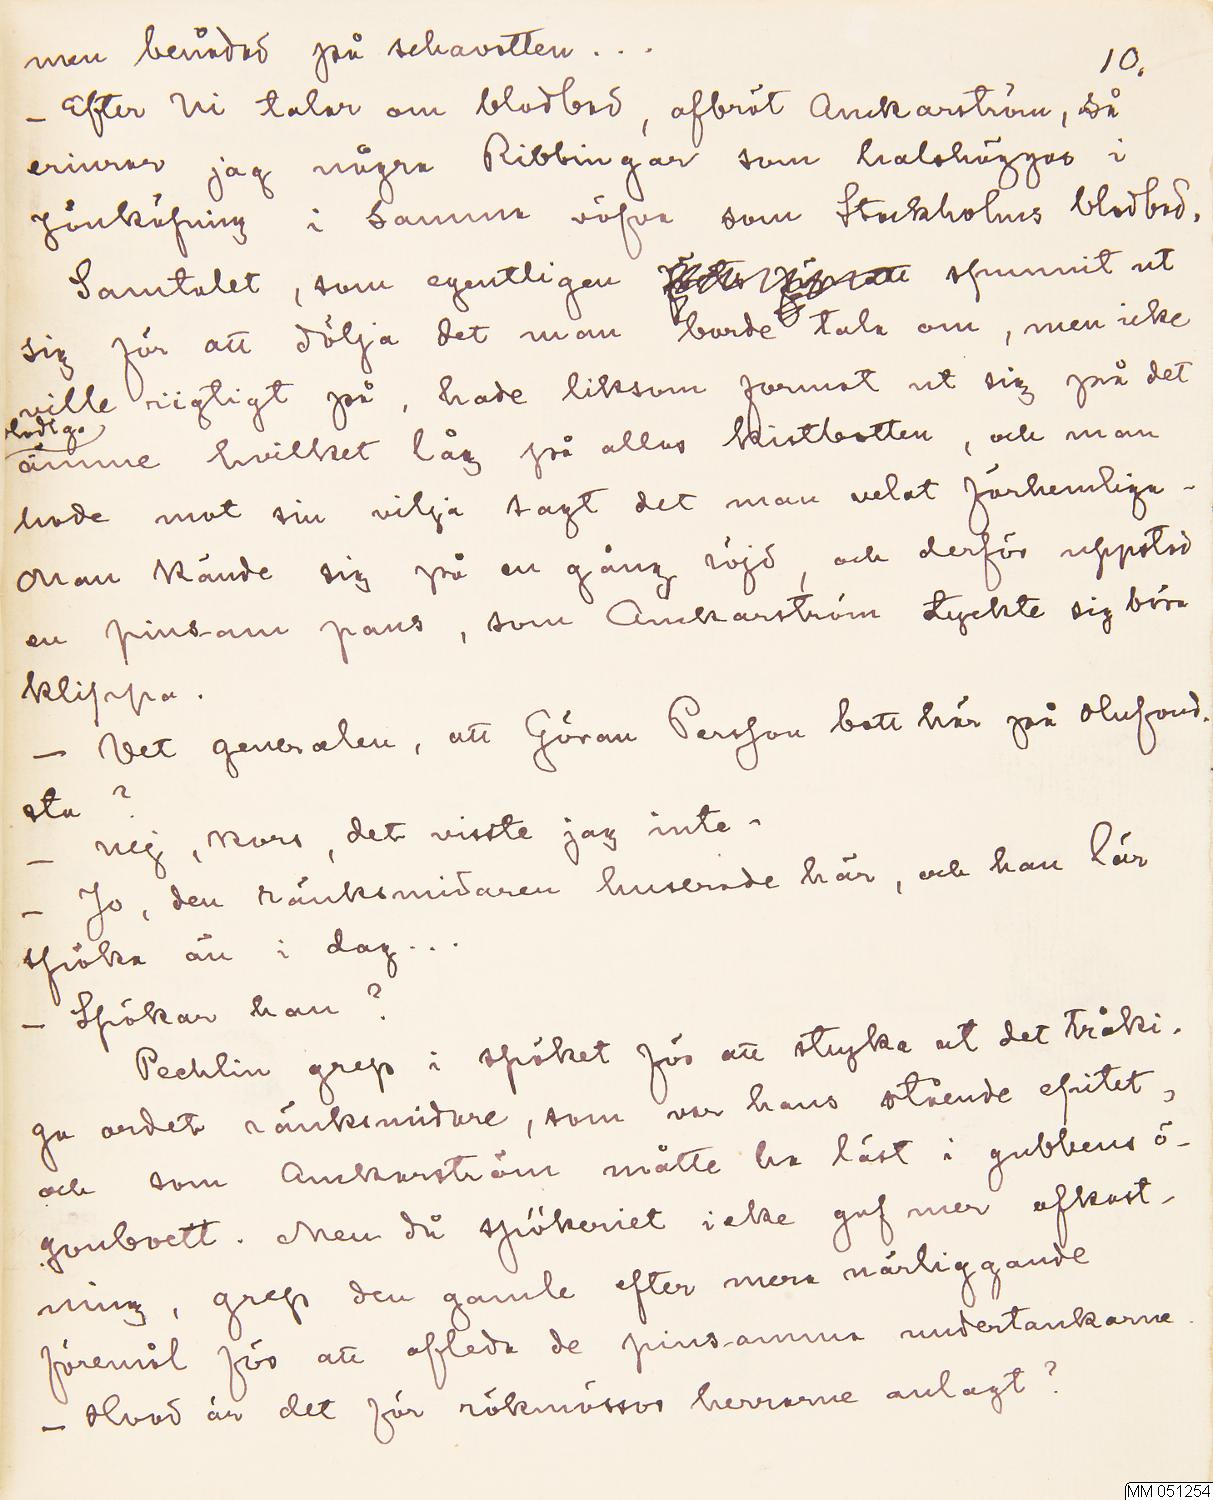 men benådad på schavotten ...
10.
– Efter Ni talar om blodbad, afbröt Anckarström, så
erinrar jag några Ribbingar som halshöggos i
Jönköping i samma väfva som Stockholms blodbad.
Samtalet, som egentligen spunnit ut
sig för att dölja det man borde tala om, men icke
ville riigtigt på, hade liksom format ut sig på det
blodiga
ämne hvilket låg på allas kistbotten, och man
hade mot sin vilja sagt det man velat förhemliga -
Man kände sig på en gång röjd, och derför uppstod
en pinsam paus, som Anckarström tyckte sig böra
klippa.
– Vet generalen, att Göran Persson bott här på Hufvud-
sta?
– Nej, kors, det visste jag inte -
– Jo, den ränksmidaren huserade här, och han lär
spöka än i dag...
– Spökar han?
Pechlin grep i spöket för att stryka ut det tråki-
ga ordet ränksmidare, som var hans stående epitet,
och som Anckarström måtte ha läst i gubbens ö-
gonhvitt. Men då spökeriet icke gaf mer afkast-
ning, grep den gamle efter mera närliggande
föremål för att afleda de pinsamma undertankarne.
– Hvad är det för rökmössor herrarne anlagt?
MM 051254